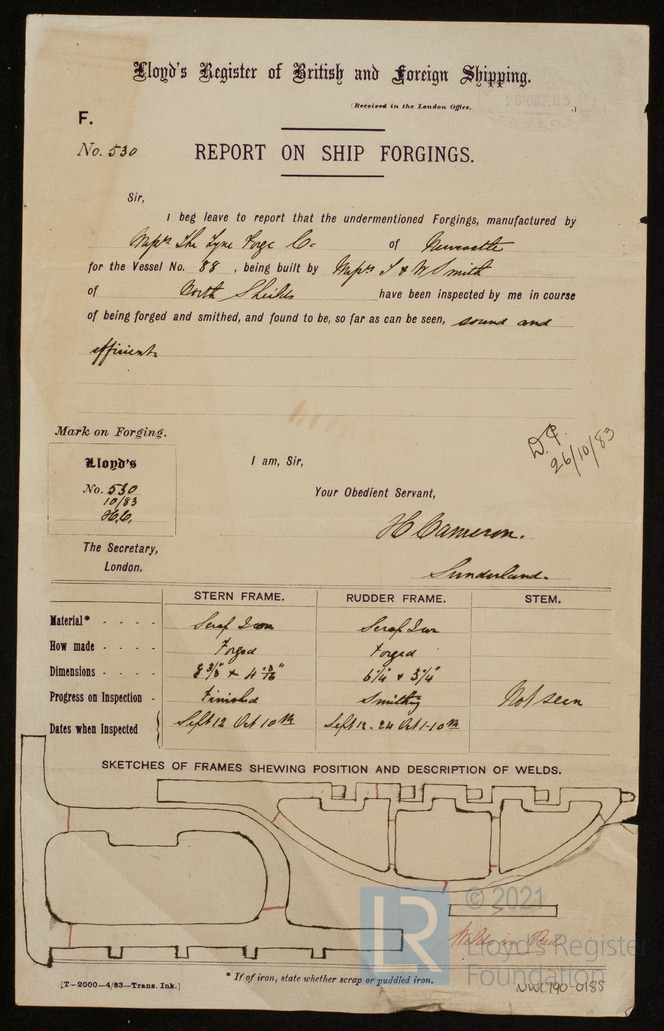 Lloyd's Register of British and Foreign Shipping.
(Received in the London Office, .)
F.
No. 530
REPORT ON SHIP FORGINGS.
Sir,
I beg leave to report that the undermentioned Forgings, manufactured by
Messrs The Tyne Forge Co of Newcastle
for the Vessel No. 88, being built by Messrs T & W Smith
of North Shields have been inspected by me in course
of being forged and smithed, and found to be, so far as can be seen, sound and
efficient
Mark on Forging.
Lloyd's
No. 530
10/83
H.C.
I am, Sir,
Your Obedient Servant,
26/10/83
H Cameron.
Sunderland.
The Secretary,
London.
STERN FRAME. RUDDER FRAME. STEM.
Material* - - - - Scrap Iron Scrap Iron
How made - - - - Forged Forged
Dimensions - - - - 6¼" x 3¼"
Progress on Inspection - Finished Smithing Not seen
Dates when Inspected Sept 12 Oct 10th Sept 12. 24 Oct 1-10th
SKETCHES OF FRAMES SHEWING POSITION AND DESCRIPTION OF WELDS.
Welds in Red
* If of iron, state whether scrap or puddled iron.
[T—2000—4/83—Trans. Ink.]
NWC790-0185
LR © 2021
Lloyd's Register
Foundation